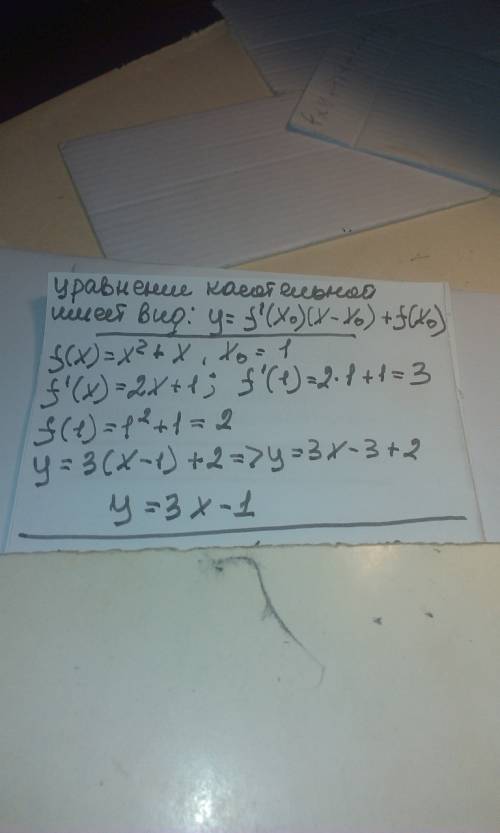 уравнение касательной
имеет вид: y = f'(x₀)(x - x₀) + f(x₀)
f(x) = x² + x, x₀ = 1
f'(x) = 2x + 1; f'(1) = 2·1 + 1 = 3
f(1) = 1² + 1 = 2
y = 3(x - 1) + 2 => y = 3x - 3 + 2
y = 3x - 1